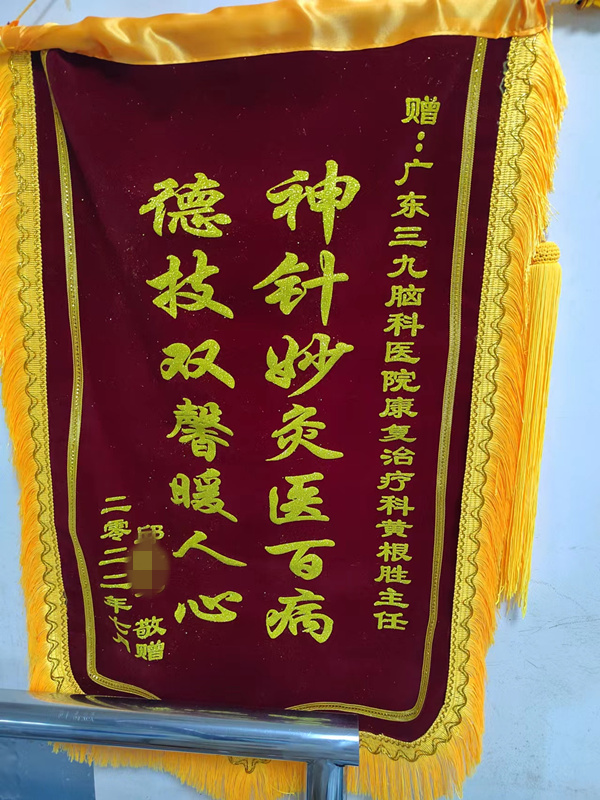 赠：广东三九脑科医院康复治疗科黄根胜主任
神针妙灸医百病
德技双馨暖人心
邱
敬赠
二零二二年七月